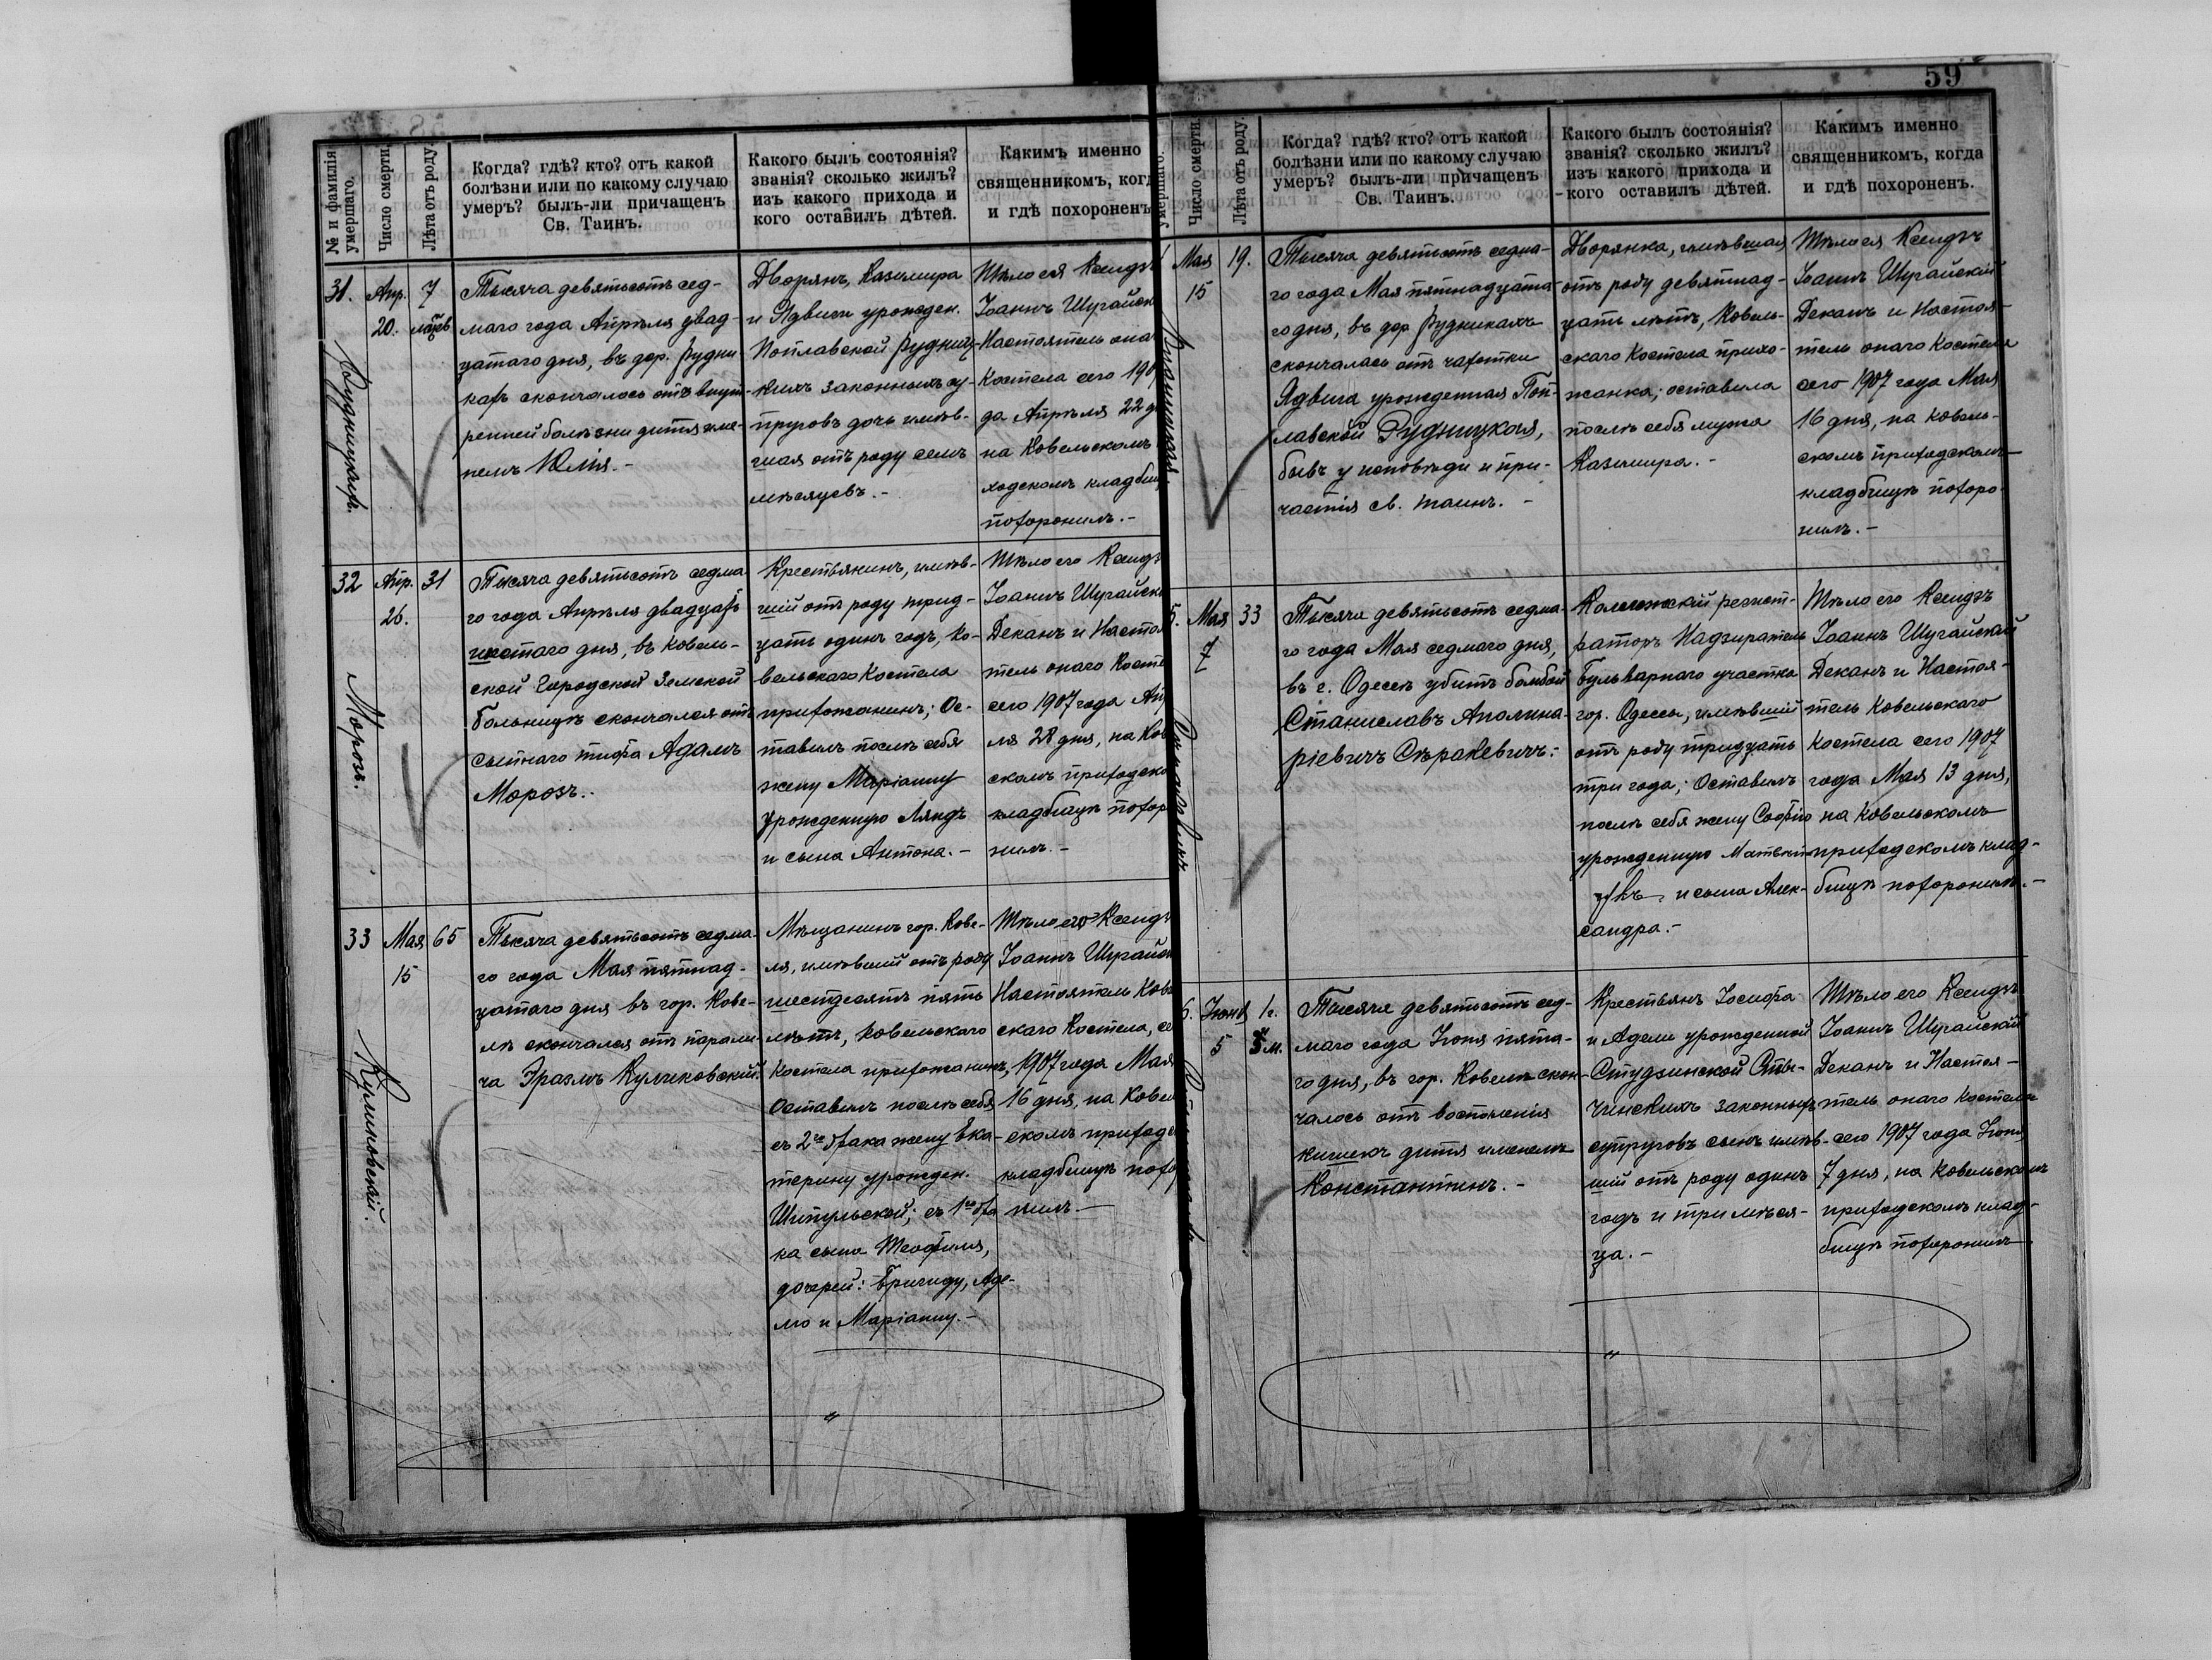 59
№ и фамилія умершаго.
Число смерти.
Лѣта отъ роду.
Когда? гдѣ? кто? отъ какой
болѣзни или по какому случаю
умеръ? былъ-ли причащенъ
Св. Таинъ.
Какого былъ состоянія?
званія? сколько жилъ?
изъ какого прихода и
кого оставилъ дѣтей.
Какимъ именно
священникомъ, когд
и гдѣ похороненъ
31.
Апр.
20.
7
мѣсяцев
Тысяча девятьсотъ сед-
маго года Апрѣля двад-
цатаго дня, въ дер. Рудни
кахъ скончалось отъ внут-
ренней болѣзни дитя име-
немъ Юлія.-
Дворянъ, Казимира
и Ядвиги урожден.
Поплавской Рудниц-
кихъ законныхъ су-
пруговъ дочь имѣв-
шая отъ роду семь
мѣсяцевъ.-
Тѣло ея Ксендзъ
Іоаннъ Шугайск
Настоятель она
Костела сего 190
да Апрѣля 22 д
на Ковельскомъ
ходскомъ кладбищ
похоронилъ.-
32
Апр.
26.
31
Морозъ.
Тысяча девятьсотъ седма
го года Апрѣля двадцать
шестаго дня, въ Ковель-
ской Городской Земской
Больницѣ скончался отъ
сыпнаго тифа Адамъ
Морозъ..
Крестьянинъ, имѣв-
шій отъ роду трид-
цать одинъ годъ, Ко-
вельскаго Костела
прихожанинъ; Ос-
тавилъ послѣ себя
жену Маріанну
урожденную Ляндъ
и сына Антона.-
Тѣло его Ксендз
Іоаннъ Шугайск
Деканъ и Настоя
тель онаго Косте
сего 1907 года Ап
ля 28 дня, на Ков
скомъ приходско
кладбищѣ похор
нилъ.-
33
Мая
15
65
Куликовскій.
Тысяча девятьсотъ седма-
го года Мая пятнад-
цатаго дня въ гор. Кове-
лѣ скончался отъ парали-
ча Эразмъ Куликовскій.
Мѣщанинъ гор. Кове-
ля, имѣвшій отъ роду
шестдесятъ пять
лѣтъ, Ковельскаго
Костела прихожанинъ,
Оставилъ послѣ себя
съ 2го брака жену Ека-
терину урожден.
Шипульской; съ 1го бра
ка сына Теофиля,
дочерей: Бригиду, Аде-
лю и Маріанну.-
Тѣло его Ксендз
Іоаннъ Шугайск
Настоятель Кове
скаго Костела, се
1907 года Мая
16 дня, на Ковел
скомъ приходс
кладбищѣ похо
нилъ.-
Число смерти.
Лѣта отъ роду.
Когда? гдѣ? кто? отъ какой
болѣзни или по какому случаю
умеръ? былъ-ли причащенъ
Св. Таинъ.
Какого былъ состоянія?
званія? сколько жилъ?
изъ какого прихода и
кого оставилъ дѣтей.
Какимъ именно
священникомъ, когда
и гдѣ похороненъ.
Мая
15
19.
Тысяча девятьсотъ седма-
го года Мая пятнадцата-
го дня, въ дер. Рудникахъ
скончалась отъ чахотки
Ядвига урожденная Поп-
лавской Рудницкая,
бывъ у исповѣди и при-
частія св. таинъ.-
Дворянка, имѣвшая
отъ роду девятнад-
цать лѣтъ, Ковель-
скаго Костела прихо-
жанка; оставила
послѣ себя мужа
Казимира.-
Тѣло ея Ксендзъ
Іоаннъ Шугайскій
Деканъ и Настоя-
тель онаго Костела
сего 1907 года Мая
16 дня, на Ковель-
скомъ приходскомъ
кладбищѣ похоро-
нилъ.-
5.
Мая
7
33
Тысяча девятьсотъ седма-
го года Мая седмаго дня,
въ г. Одессѣ убитъ бомбой
Станиславъ Аполина-
ріевичъ Сѣраковичъ.
Коллежскій регист-
раторъ Надзиратель
Бульварнаго участка
гор. Одессы, имѣвшій
отъ роду тридцать
три года; Оставилъ
послѣ себя жену Софію
урожденную
и сына Алек-
сандра.-
Тѣло его Ксендзъ
Іоаннъ Шугайскій
Деканъ и Настоя-
тель Ковельскаго
Костела сего 1907
года Мая 13 дня,
на Ковельскомъ
приходскомъ клад-
бищѣ похоронилъ.-
6.
Іюня
5
1г.
3 м.
Тысяча девятьсотъ сед-
маго года Іюня пята-
го дня, въ гор. Ковелѣ скон-
чалось отъ воспаленія
кишекъ дитя именемъ
Константинъ.-
Крестьянъ Іосифа
и Адели урожденной
Студзинской
законныхъ
супруговъ сынъ имѣв-
шій отъ роду одинъ
годъ и три мѣся-
ца.-
Тѣло его Ксендзъ
Іоаннъ Шугайскій
Деканъ и Настоя-
тель онаго Костела
сего 1907 года Іюня
7 дня, на Ковельскомъ
приходскомъ клад-
бищѣ похоронилъ